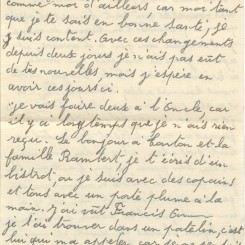 comme moi d'ailleurs car moi tant
que je te sais en bonne santé, je
suis content. Avec ces changements
depuis deux jours je n'ais pas eut
de tes nouvelles, mais j'espère en
avoir ces jours ci.
je vais faire deux à l'Oncle car
il y a longtemps que je n'ais rien
reçu. Le bonjour à Tonton et la
famille Rambert, je t'écris d'un
bistrot ou je suis avec des copains
et tous avec un porte plume à la
main. j'ai vu Francis
je l'ai trouver dans un patelin, c'est
lui qui m'a appeler car je ne